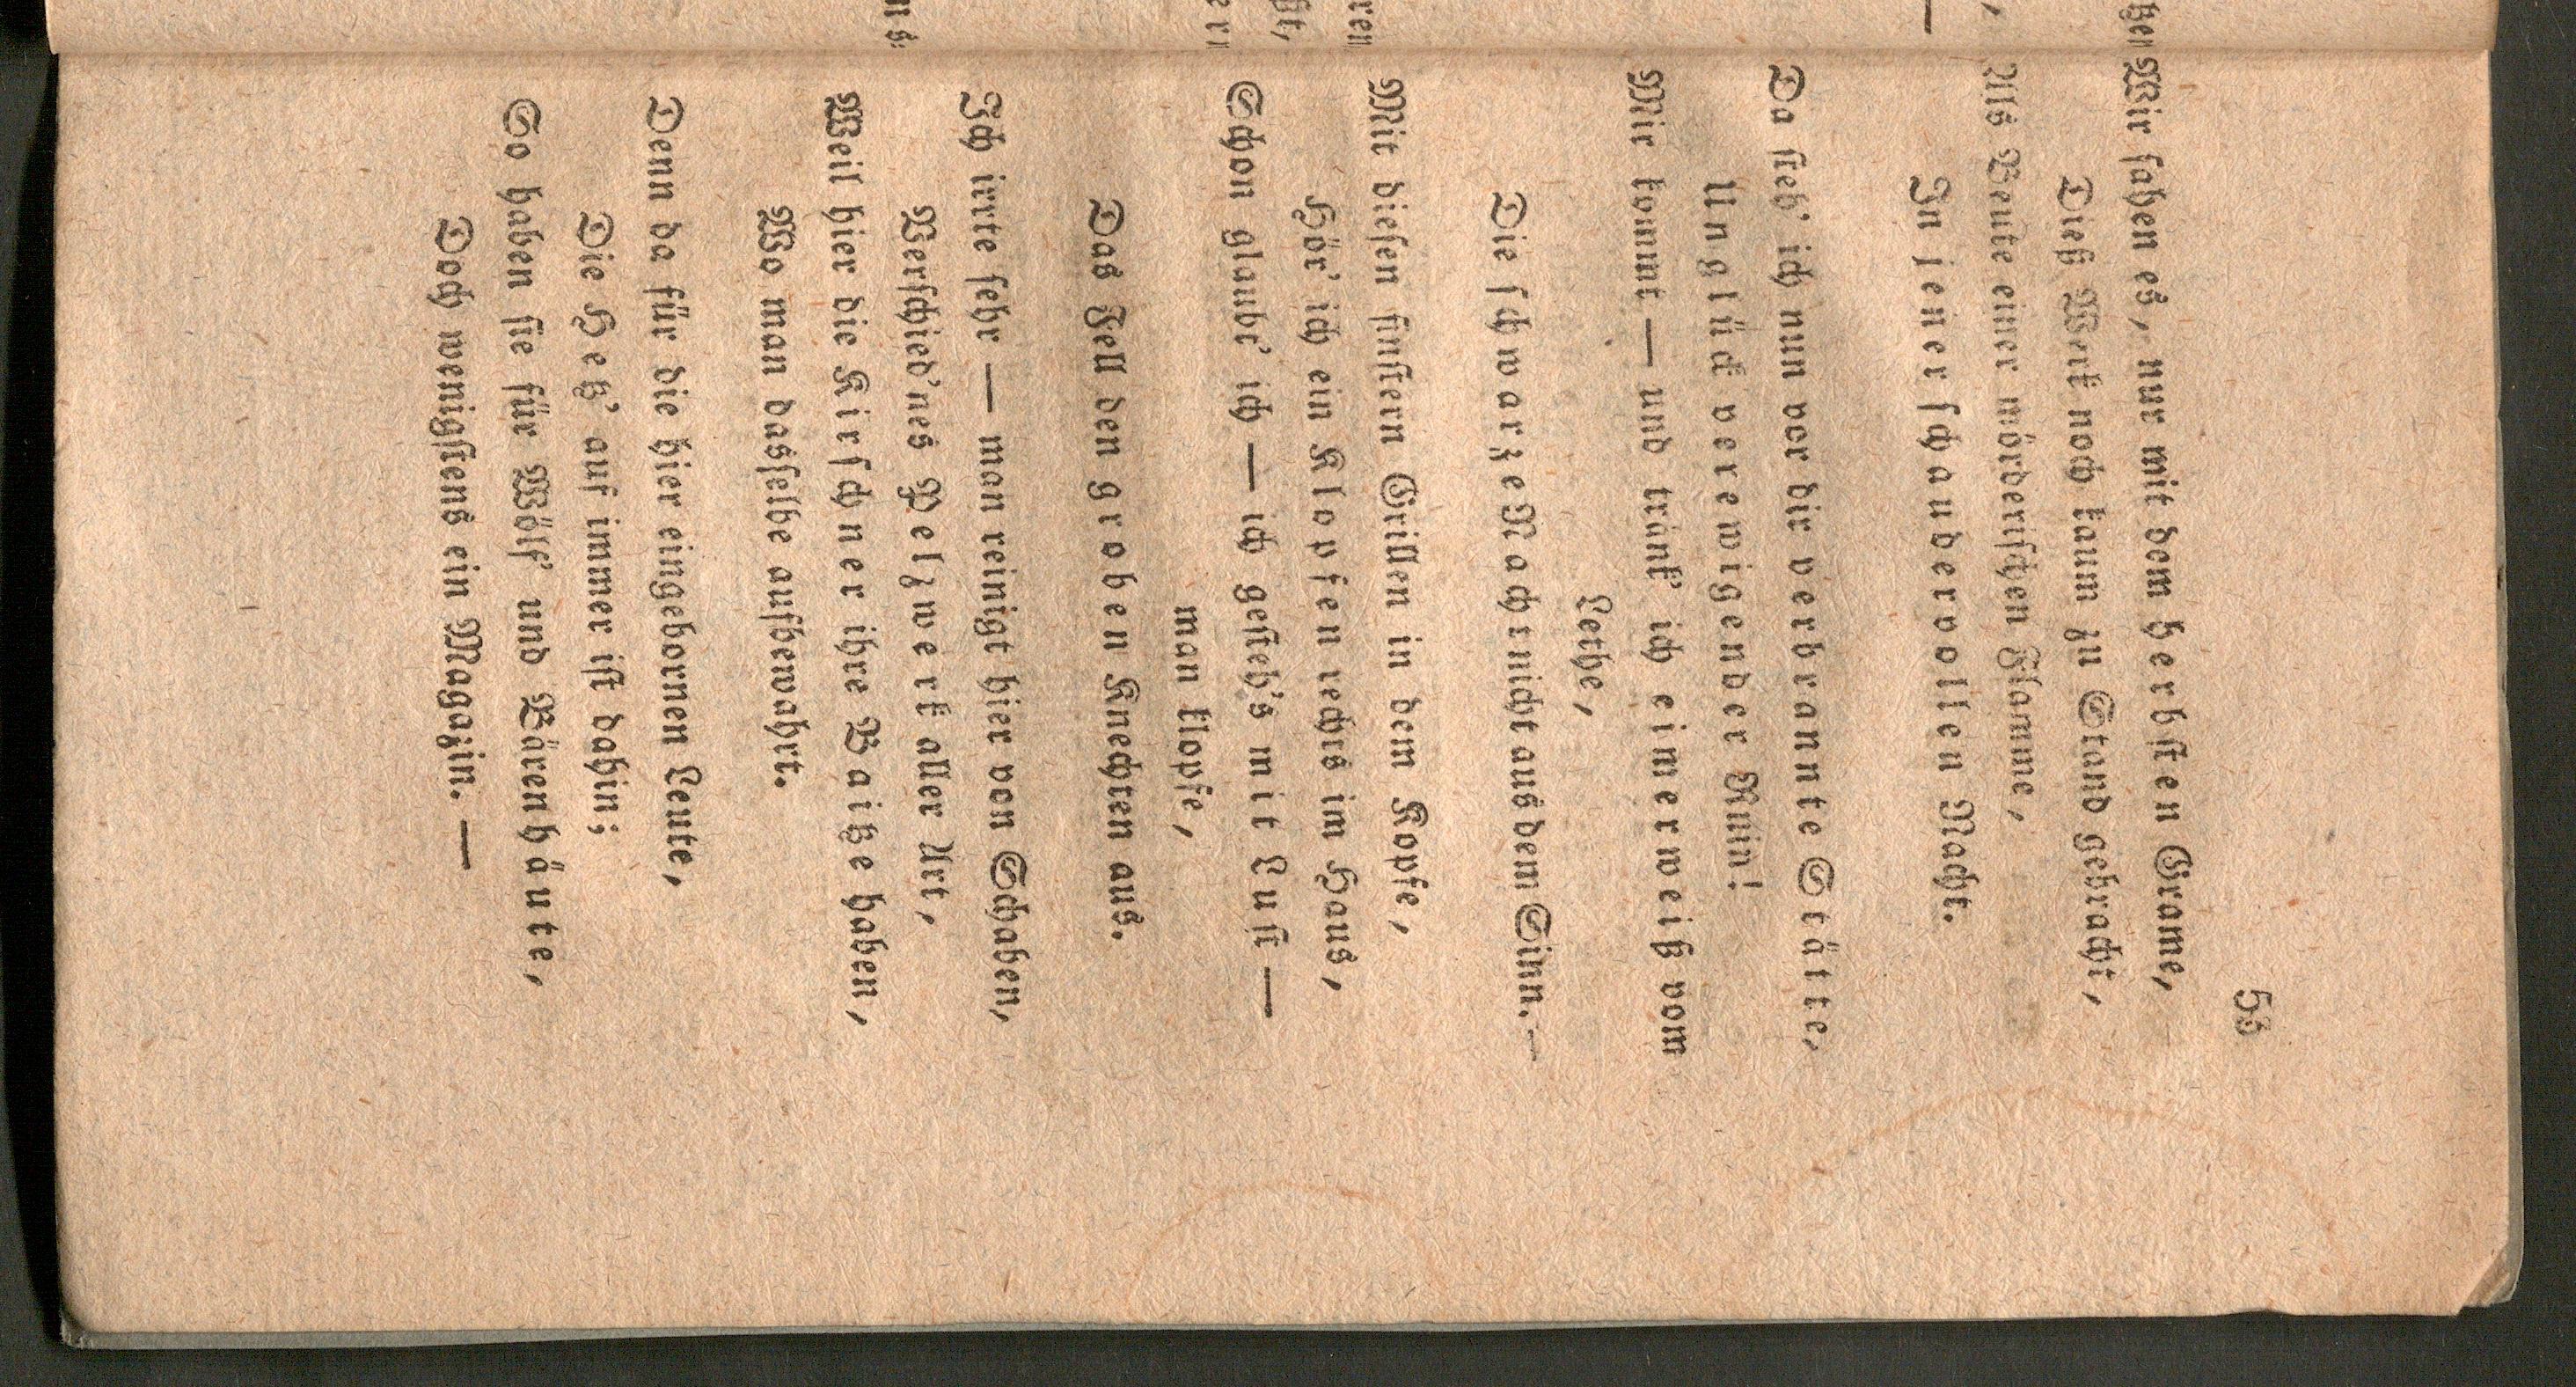 53
Wir sahen es, nur mit dem herbsten Grame,
Dieß Werk noch kaum zu Stand gebracht,
Als Beute einer mörderischen Flamme,
In jener schaudervollen Macht.
Da steh' ich nun vor dir verbrannte Stätte,
Unglück verewigender Ruin!
Mir kommt — und tränk' ich eimerweiß vom
Lethe,
Die schwarze Nacht nicht aus dem Sinn. —
Mit diesen finstern Grillen in dem Kopfe,
Hör' ich ein Klopfen rechts im Haus,
Schon glaubt' ich — ich gesteh's mit Lust —
man klopfe,
Das Fell den groben Knechten aus.
Ich irrte sehr — man reinigt hier von Schaben,
Verschied'nes Pelzwerk aller Art,
Weil hier die Kirschner ihre Baitze haben,
Wo man dasselbe aufbewahrt.
Denn da für die hier eingebornen Leute,
Die Hetz' auf immer ist dahin;
So haben sie für Wölf' und Bärenhäute,
Doch wenigstens ein Magazin. —